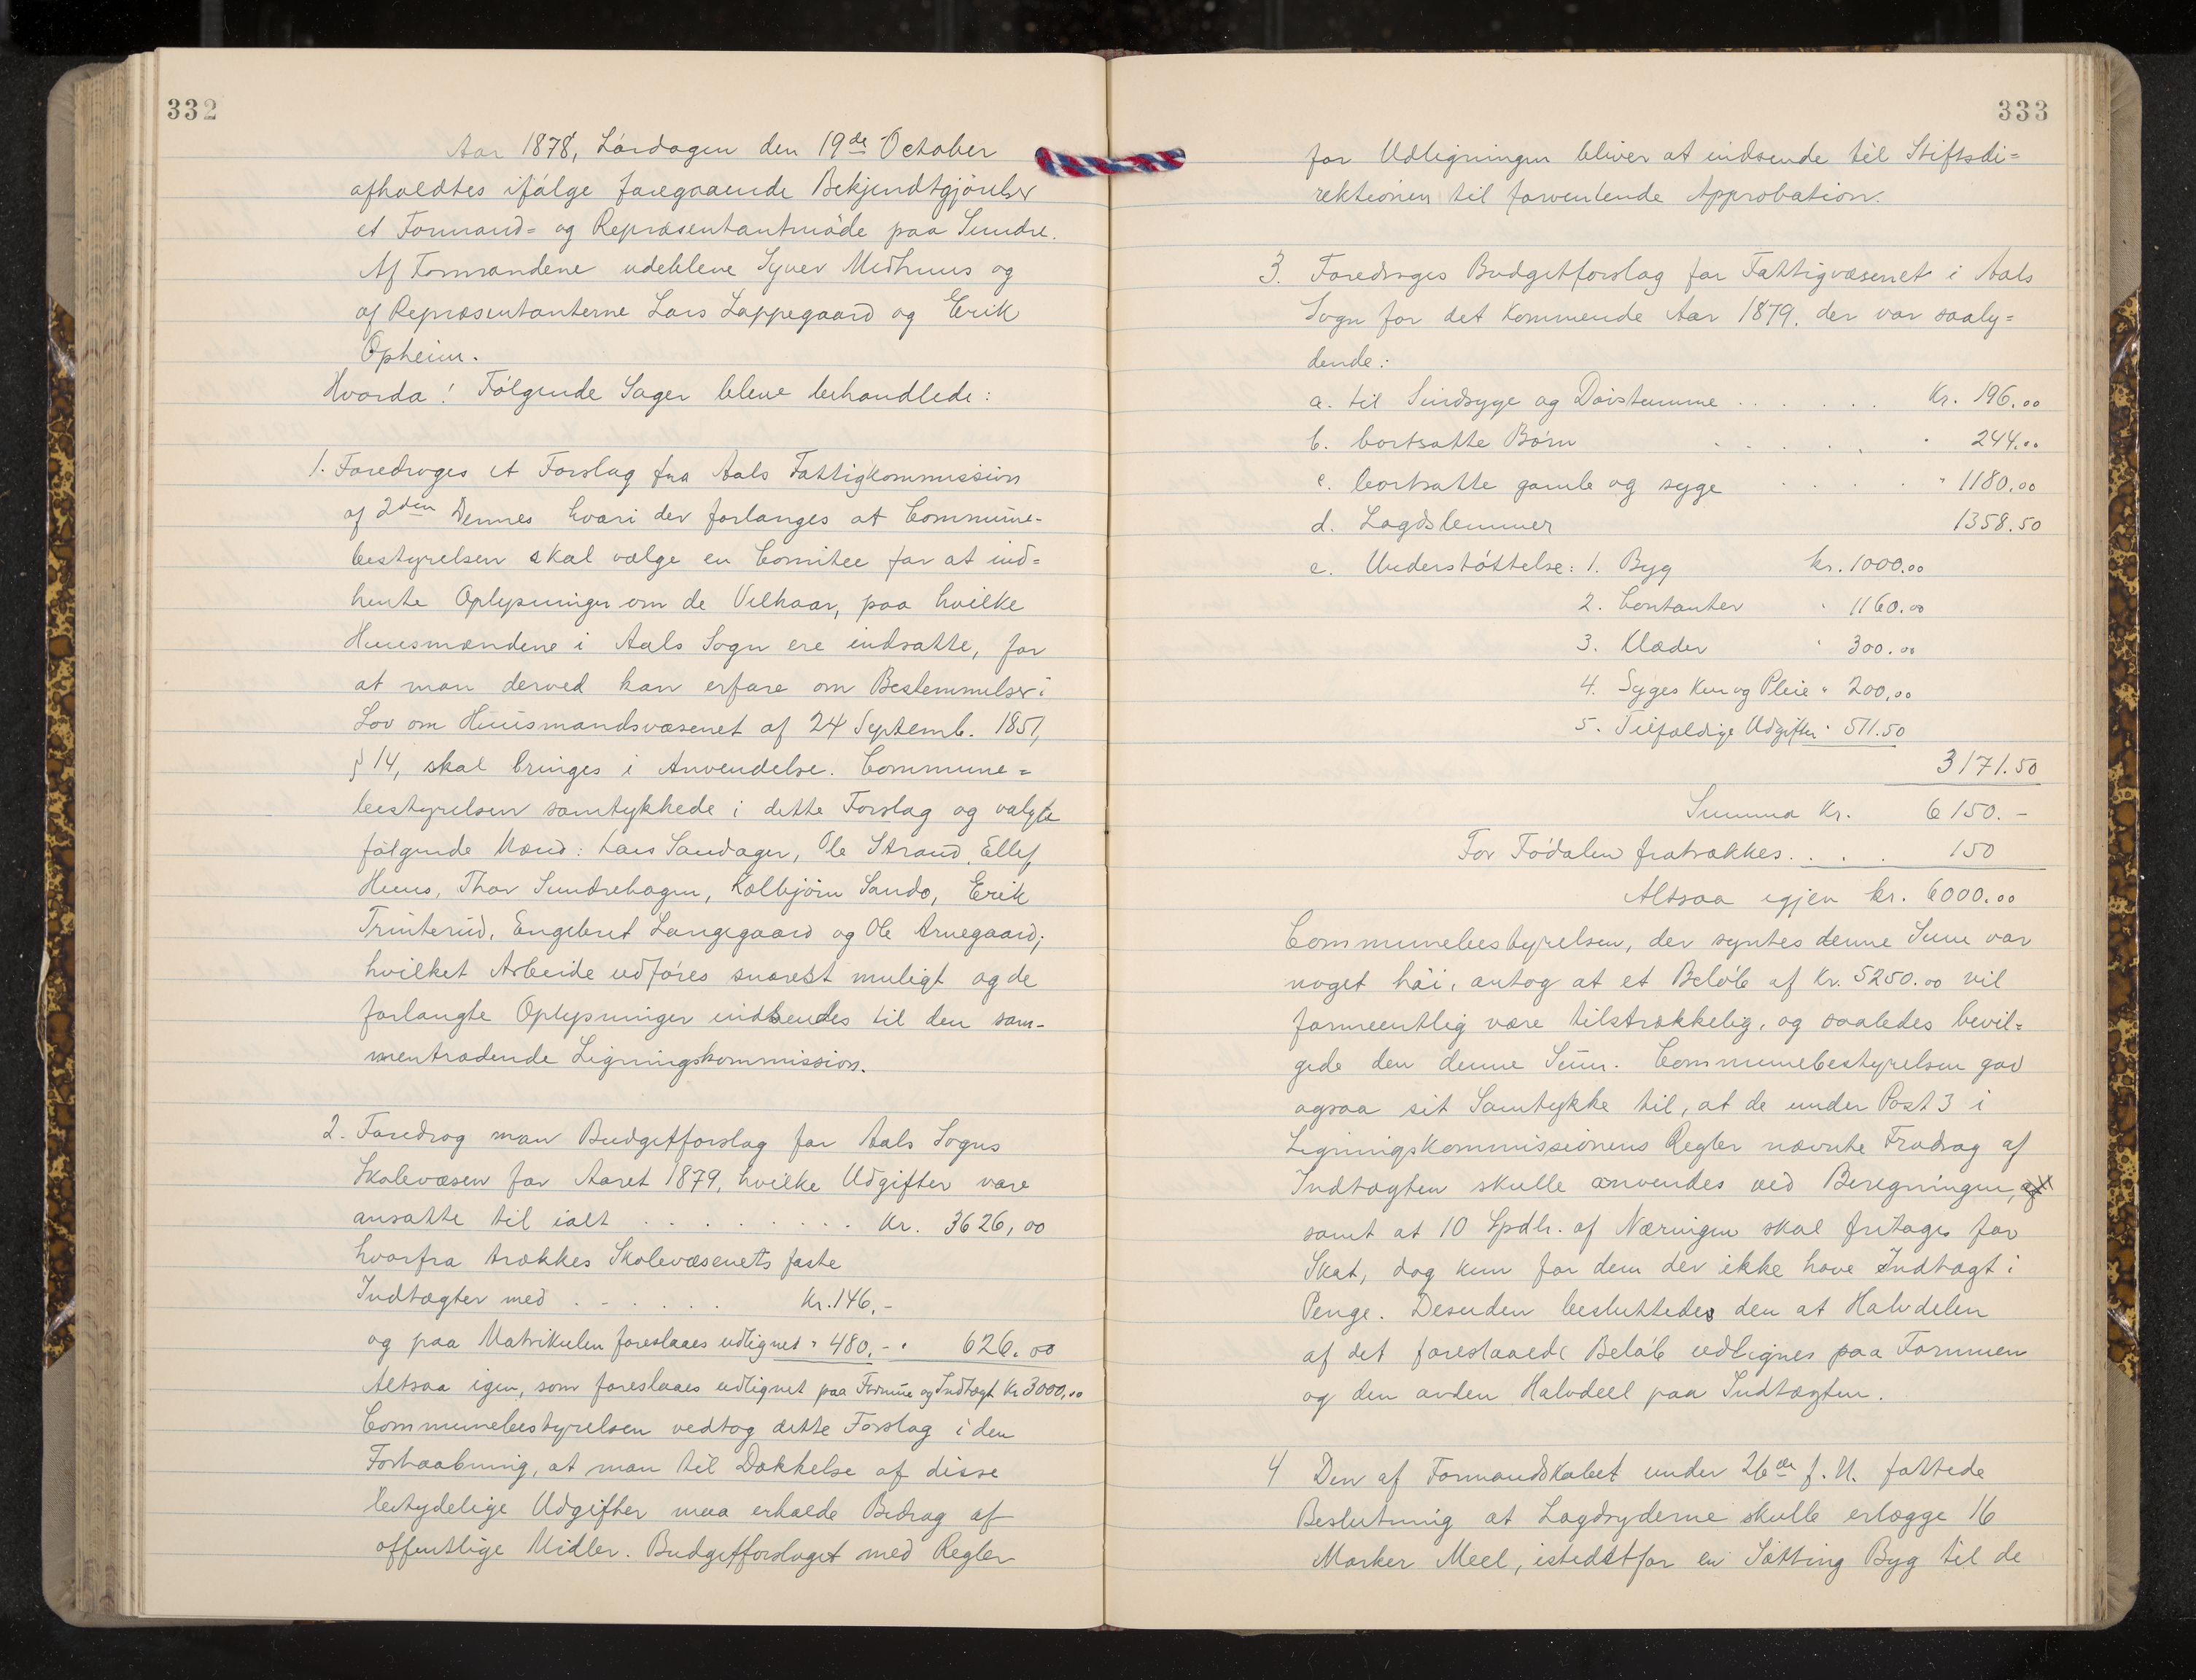 332
Aar 1878, Lørdagen den 19de October
afholdtes ifølge foregaaende Bekjendtgjørelser
et Formand= og Repræsentantmøde paa Sundre.
Af Formændene udebleve Syver Medhuus og
af Repræsentanterne Lars Lappegaard og Erik
Opheim.
Hvorda! Følgende Sager bleve behandlede:
1. Foredroges et Forslag fra Aals Fattigkommission
af 2den Dennes hvori der forlanges at Commune-
bestyrelsen skal vælge en Comitee for at ind=
hente Oplysninger om de Vilkaar, paa hvilke
Huusmændene i Aals Sogn ere indsatte, for
at man derved kan erfare om Bestemmelser i
Lov om Huusmandsvæsenet af 24 Septemb. 1851,
§ 14, skal bringes i Anvendelse. Commune=
bestyrelsen samtykkede i dette Forslag og valgte
følgende Mænd: Lars Sandager, Ole Strand, Ellef
Huus, Thor Sundrehagen, Kolbjørn Sando, Erik
Trinterud, Engebret Langegaard og Ole Arnegaard;
hvilket Arbeide udføres snarest muligt og de
forlangte Oplysninger indsendes til den sam-
mentrædende Ligningskommission.
2. Foredrog man Budgetforslag for Aals Sogns
Skolevæsen for Aaret 1879, hvilke Udgifter vare
ansatte til ialt . . . . . . . . . Kr. 3626,00
hvorfra trækkes Skolevæsenets faste
Indtægter med . . . . . . Kr. 146,-
og paa Matrikulen foreslaaes udlignet " 480,- " 626.00
Altsaa igen, som foreslaaes udlignet paa Formue og Indtægt Kr 3000,00
Communebestyrelsen vedtog dette Forslag i den
Forhaabning, at man til Dækkelse af disse
betydelige Udgifter maa erholde Bidrag af
offentlige Midler. Budgetforslaget med Regler
333
for Udligningen bliver at indsende til Stiftsdi=
rektionen til forventende Approbation.
3. Foredroges Budgetforslag for Fattigvæsenet i Aals
Sogn for det Kommende Aar 1879, der var saaly=
dende:
a. til Sindsyge og Døvstumme . . . . . . Kr. 196.00
b. bortsatte Børn . . . . . 244.00
c. bortsatte gamle og syge . . . . " 1180.00
d. Lægdslemmer 1358.50
e. Understøttelse: 1. Byg kr. 1000.00
2. Contanter " 1160.00
3. Klæder " 300.00
4. Syges Kur og Pleie " 200,00
5. Tilfældige Udgifter " 511.50
3171.50
Summa Kr. 6150.-
For Fødalen fratrækkes. . . . 150
Altsaa igjen kr. 6000.00
Communebestyrelsen, der syntes denne Sum var
noget høi, antog at et Beløb af Kr. 5250.00 vil
formeentlig være tilstrækkelig, og saaledes bevil=
gede den denne Sum. Communebestyrelsen gav
ogsaa sit Samtykke til, at de under Post 3 i
Ligningskommissionens Regler nævnte Fradrag af
Indtægten skulle anvendes ved Beregningen,
samt at 10 Spdlr. af Næringen skal fritages for
Skat, dog kun for dem der ikke have Indtægt i
Penge. Desuden besluttedes den at Halvdelen
af det foreslaaede Beløb udlignes paa Formuen
og den anden Halvdeel paa Indtægten.
4 Den af Formandskabet under 26de f. M. fattede
Beslutning at Lægdsyderne skulle erlægge 16
Marker Meel, istedetfor en Sætting Byg til de